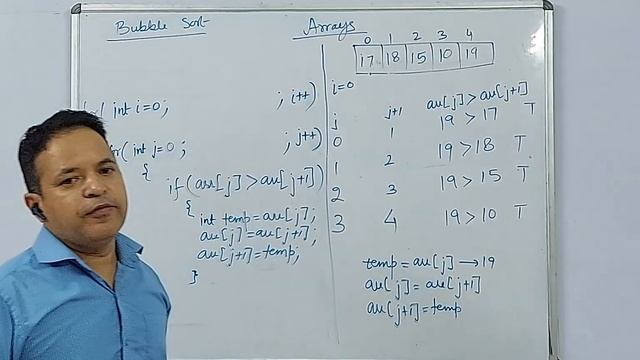 Bubble Sort
Arrays
0 1 2 3 4
17 18 15 10 19
for( int i=0; ; i++)
for( int j=0; ; j++)
{
if(arr[j]>arr[j+1])
{
int temp=arr[j];
arr[j]=arr[j+1];
arr[j+1]=temp;
}
i=0
j j+1 arr[j]>arr[j+1]
0 1 19>17 T
1 2 19>18 T
2 3 19>15 T
3 4 19>10 T
temp=arr[j]→19
arr[j]=arr[j+1]
arr[j+1]=temp